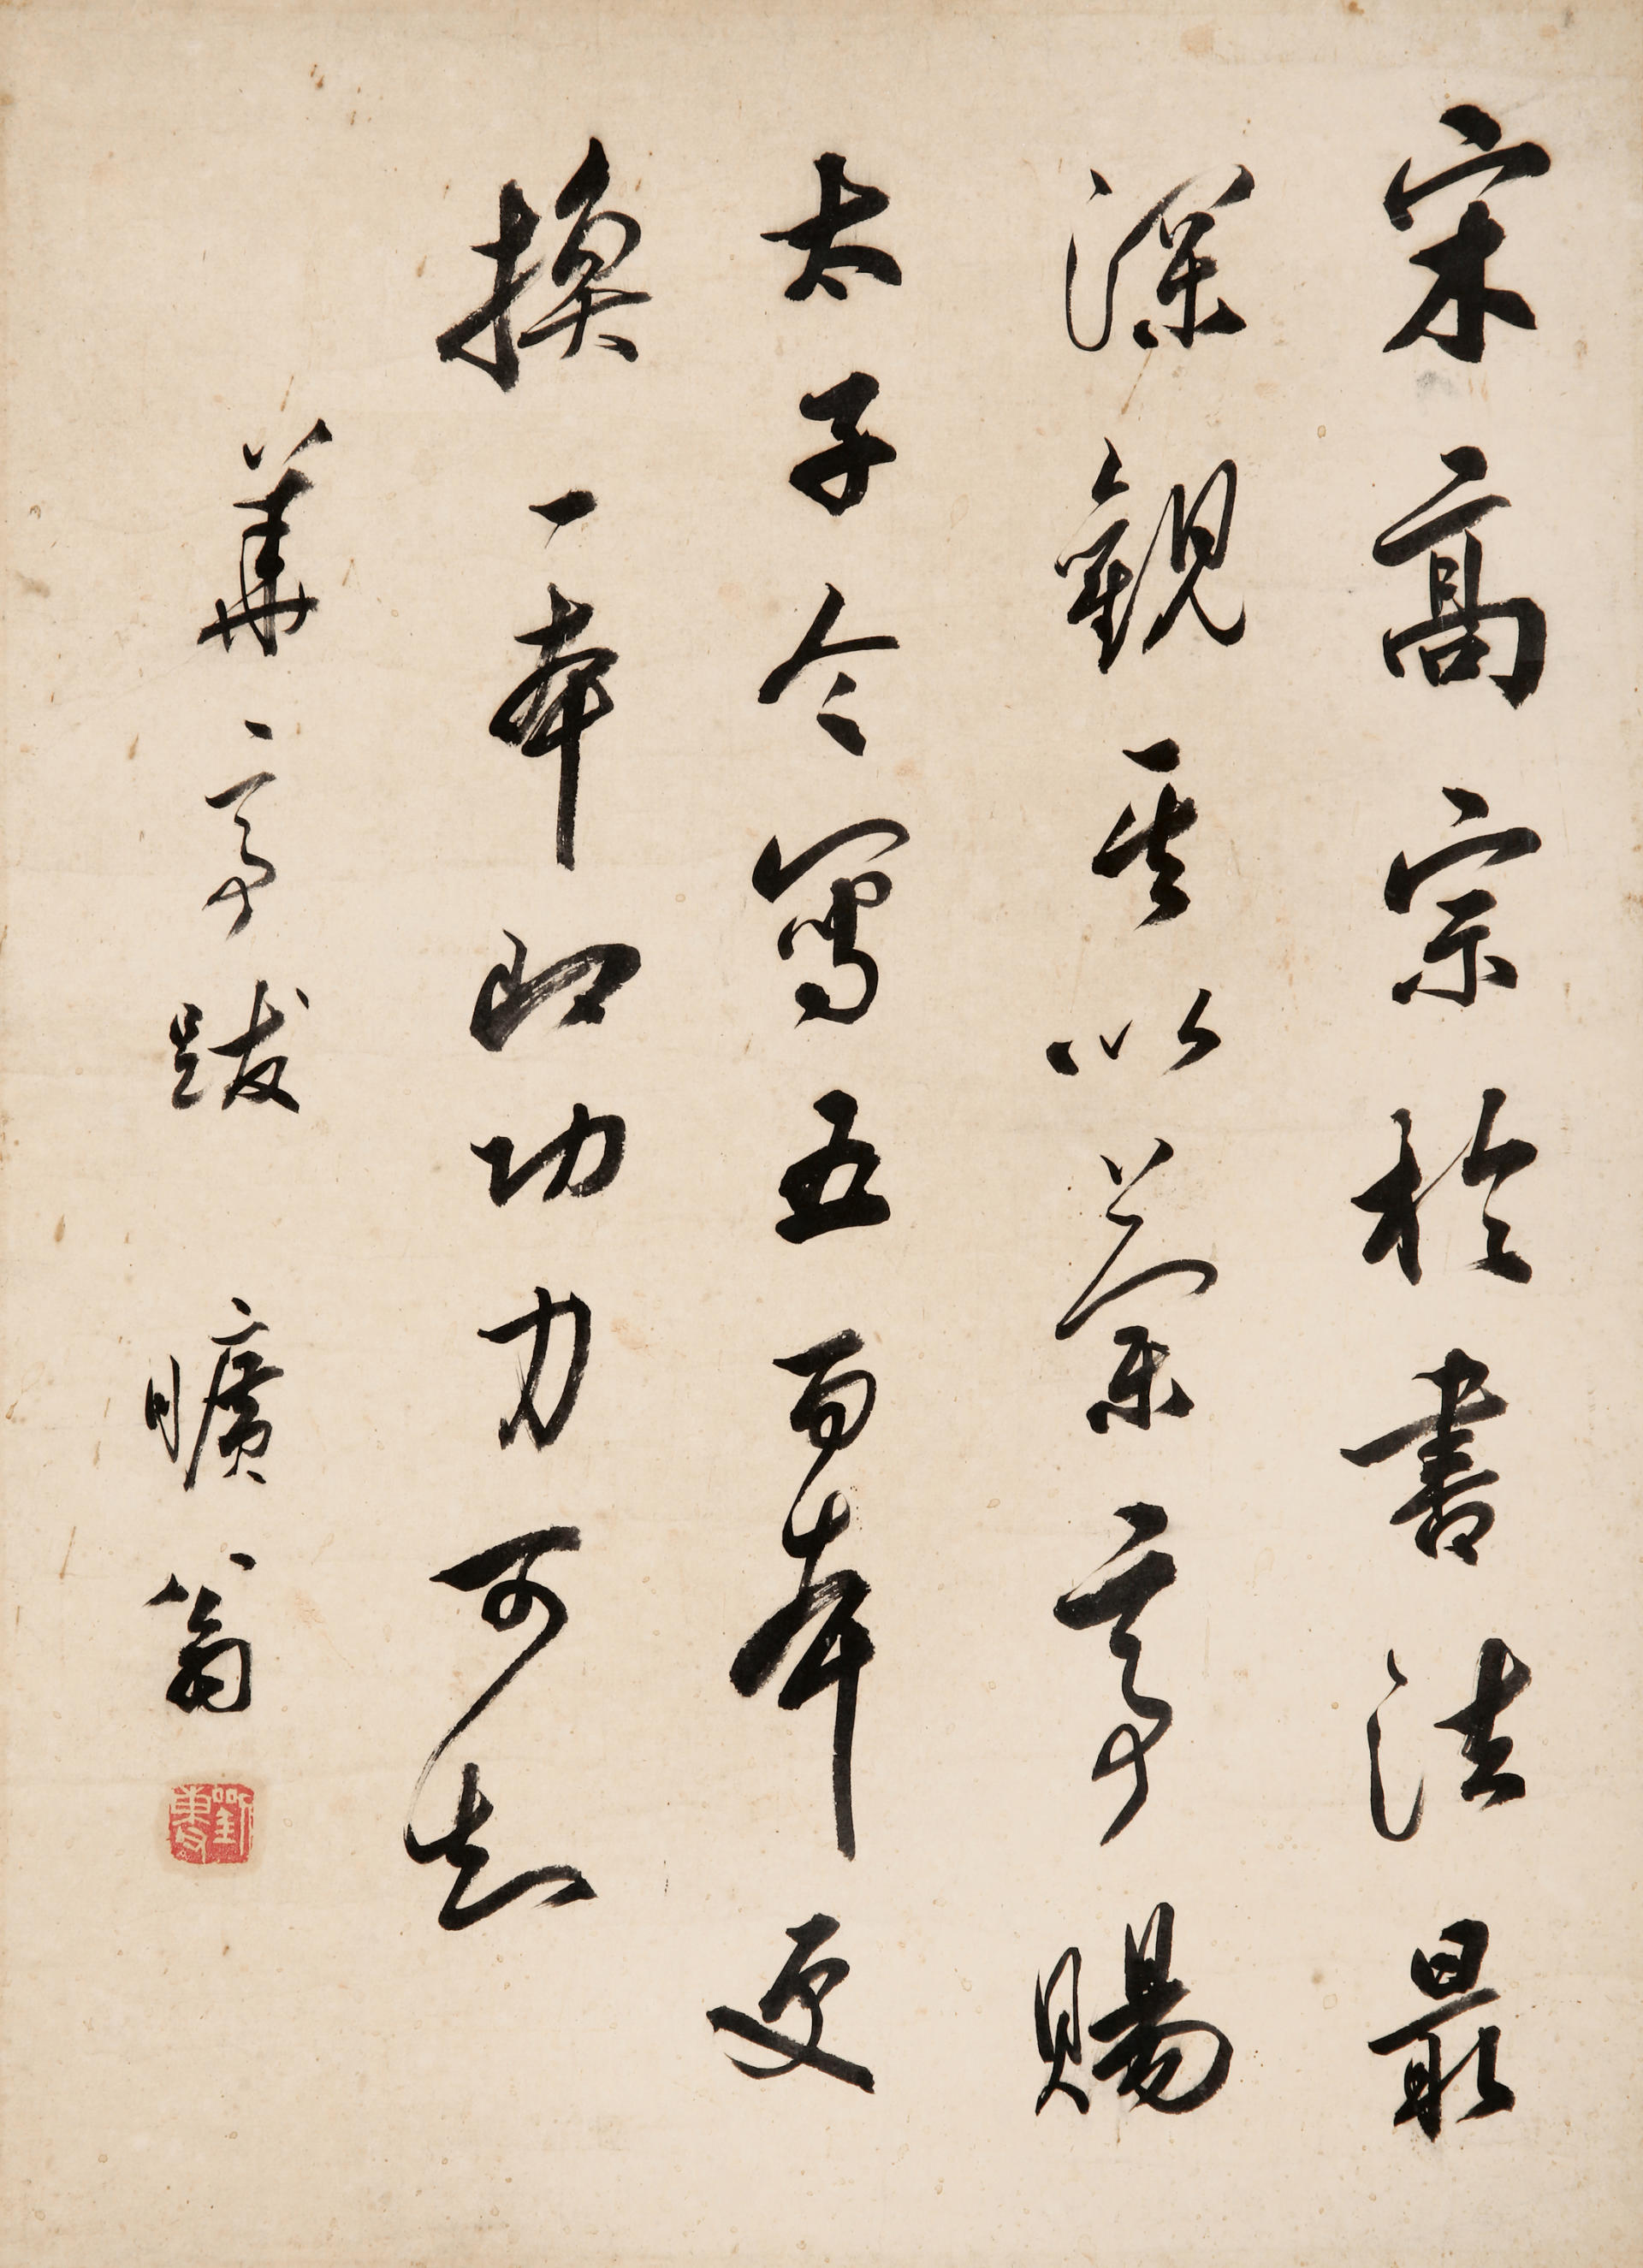 宋高宗於書法最
深觀其以蘭亭賜
太子令寫五百本更
換一本即功力可知
華亭跋 曠翁